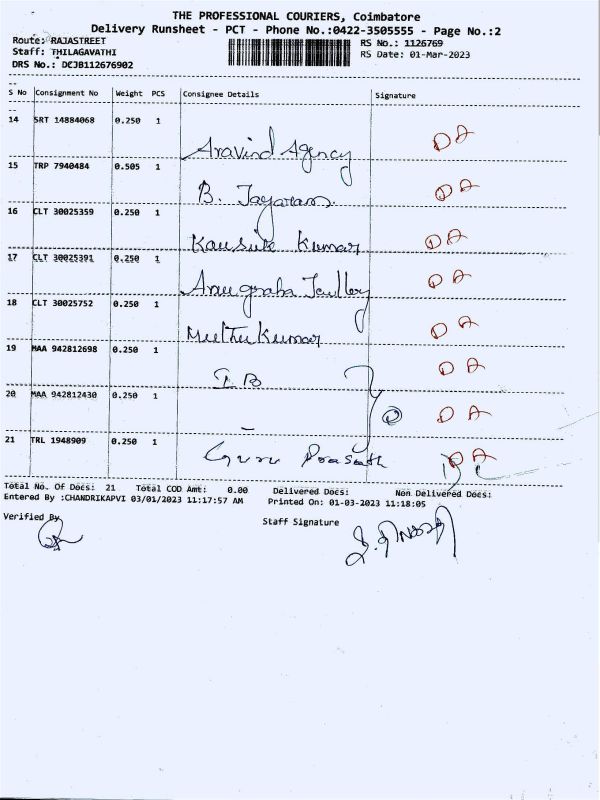 THE PROFESSIONAL COURIERS, Coimbatore
Delivery Runsheet - PCT - Phone No.:0422-3505555 - Page No.:2
Route: RAJASTREET RS No.: 1126769
Staff: THILAGAVATHI RS Date: 01-Mar-2023
DRS No.: DCJB112676902
S No Consignment No Weight PCS Consignee Details Signature
14 SRT 14884068 0.250 1
Aravind Agency DA
15 TRP 7940484 0.505 1
B. Jayaram DA
16 CLT 30025359 0.250 1
Kumar DA
17 CLT 30025391 0.250 1
DA
18 CLT 30025752 0.250 1
Muthu Kumar DA
19 MAA 942812698 0.250 1
I B DA
20 MAA 942812430 0.250 1
2 DA
21 TRL 1948909 0.250 1
Guru Prasath DA
Total No. Of Docs: 21 Total COD Amt: 0.00 Delivered Docs: Non Delivered Docs:
Entered By :CHANDRIKAPVI 03/01/2023 11:17:57 AM Printed On: 01-03-2023 11:18:05
Verified By Staff Signature